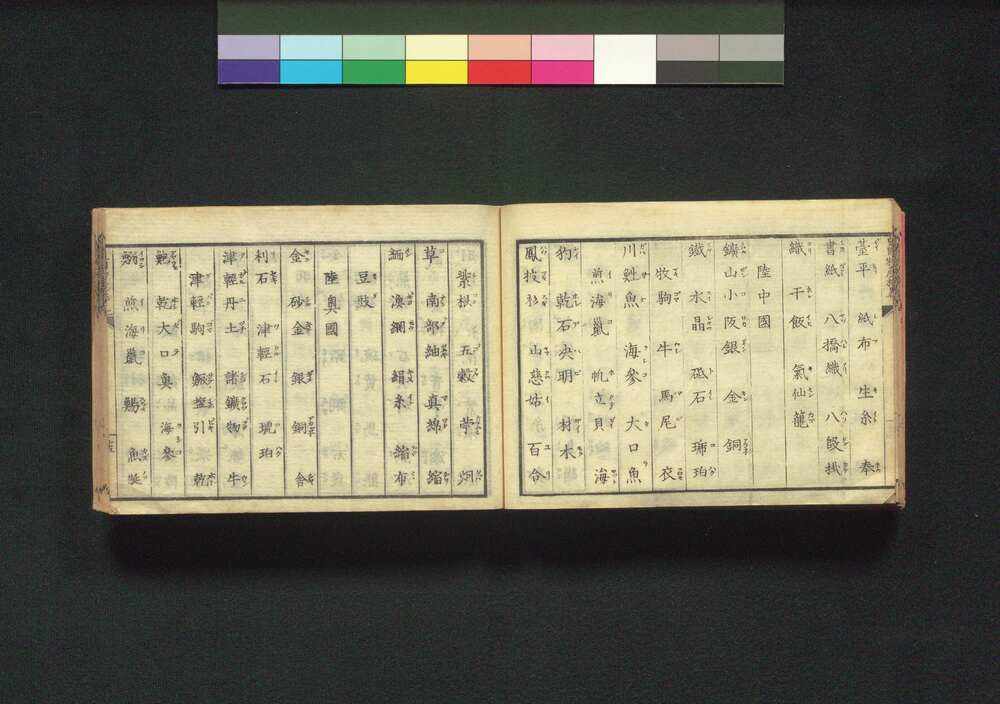 臺平 紙布 生糸 奉
書紙 八橋織 八段掛
織 干飯 氣仙籠
陸中國
鑛山小阪銀 金 銅
鐵 水晶 砥石 琥珀
牧駒 牛 馬尾 衣
川鮏魚 海參 大口魚
煎海鼠 帆立貝 海
豹 乾石决明 材木
鳳披杉 山慈姑 百合
紫根 五穀 莨 烟
草 南部紬 真綿 縮
緬 漁網 絹糸 縮布
豆豉
陸奥國
金 砂金 銀 銅 舎
利石 津輕石 琥珀
津輕丹土 諸鑛物 牛
津輕駒 鰊塩引 乾
鮑 乾大口奥 海參
煎海鼠 鰑 魚